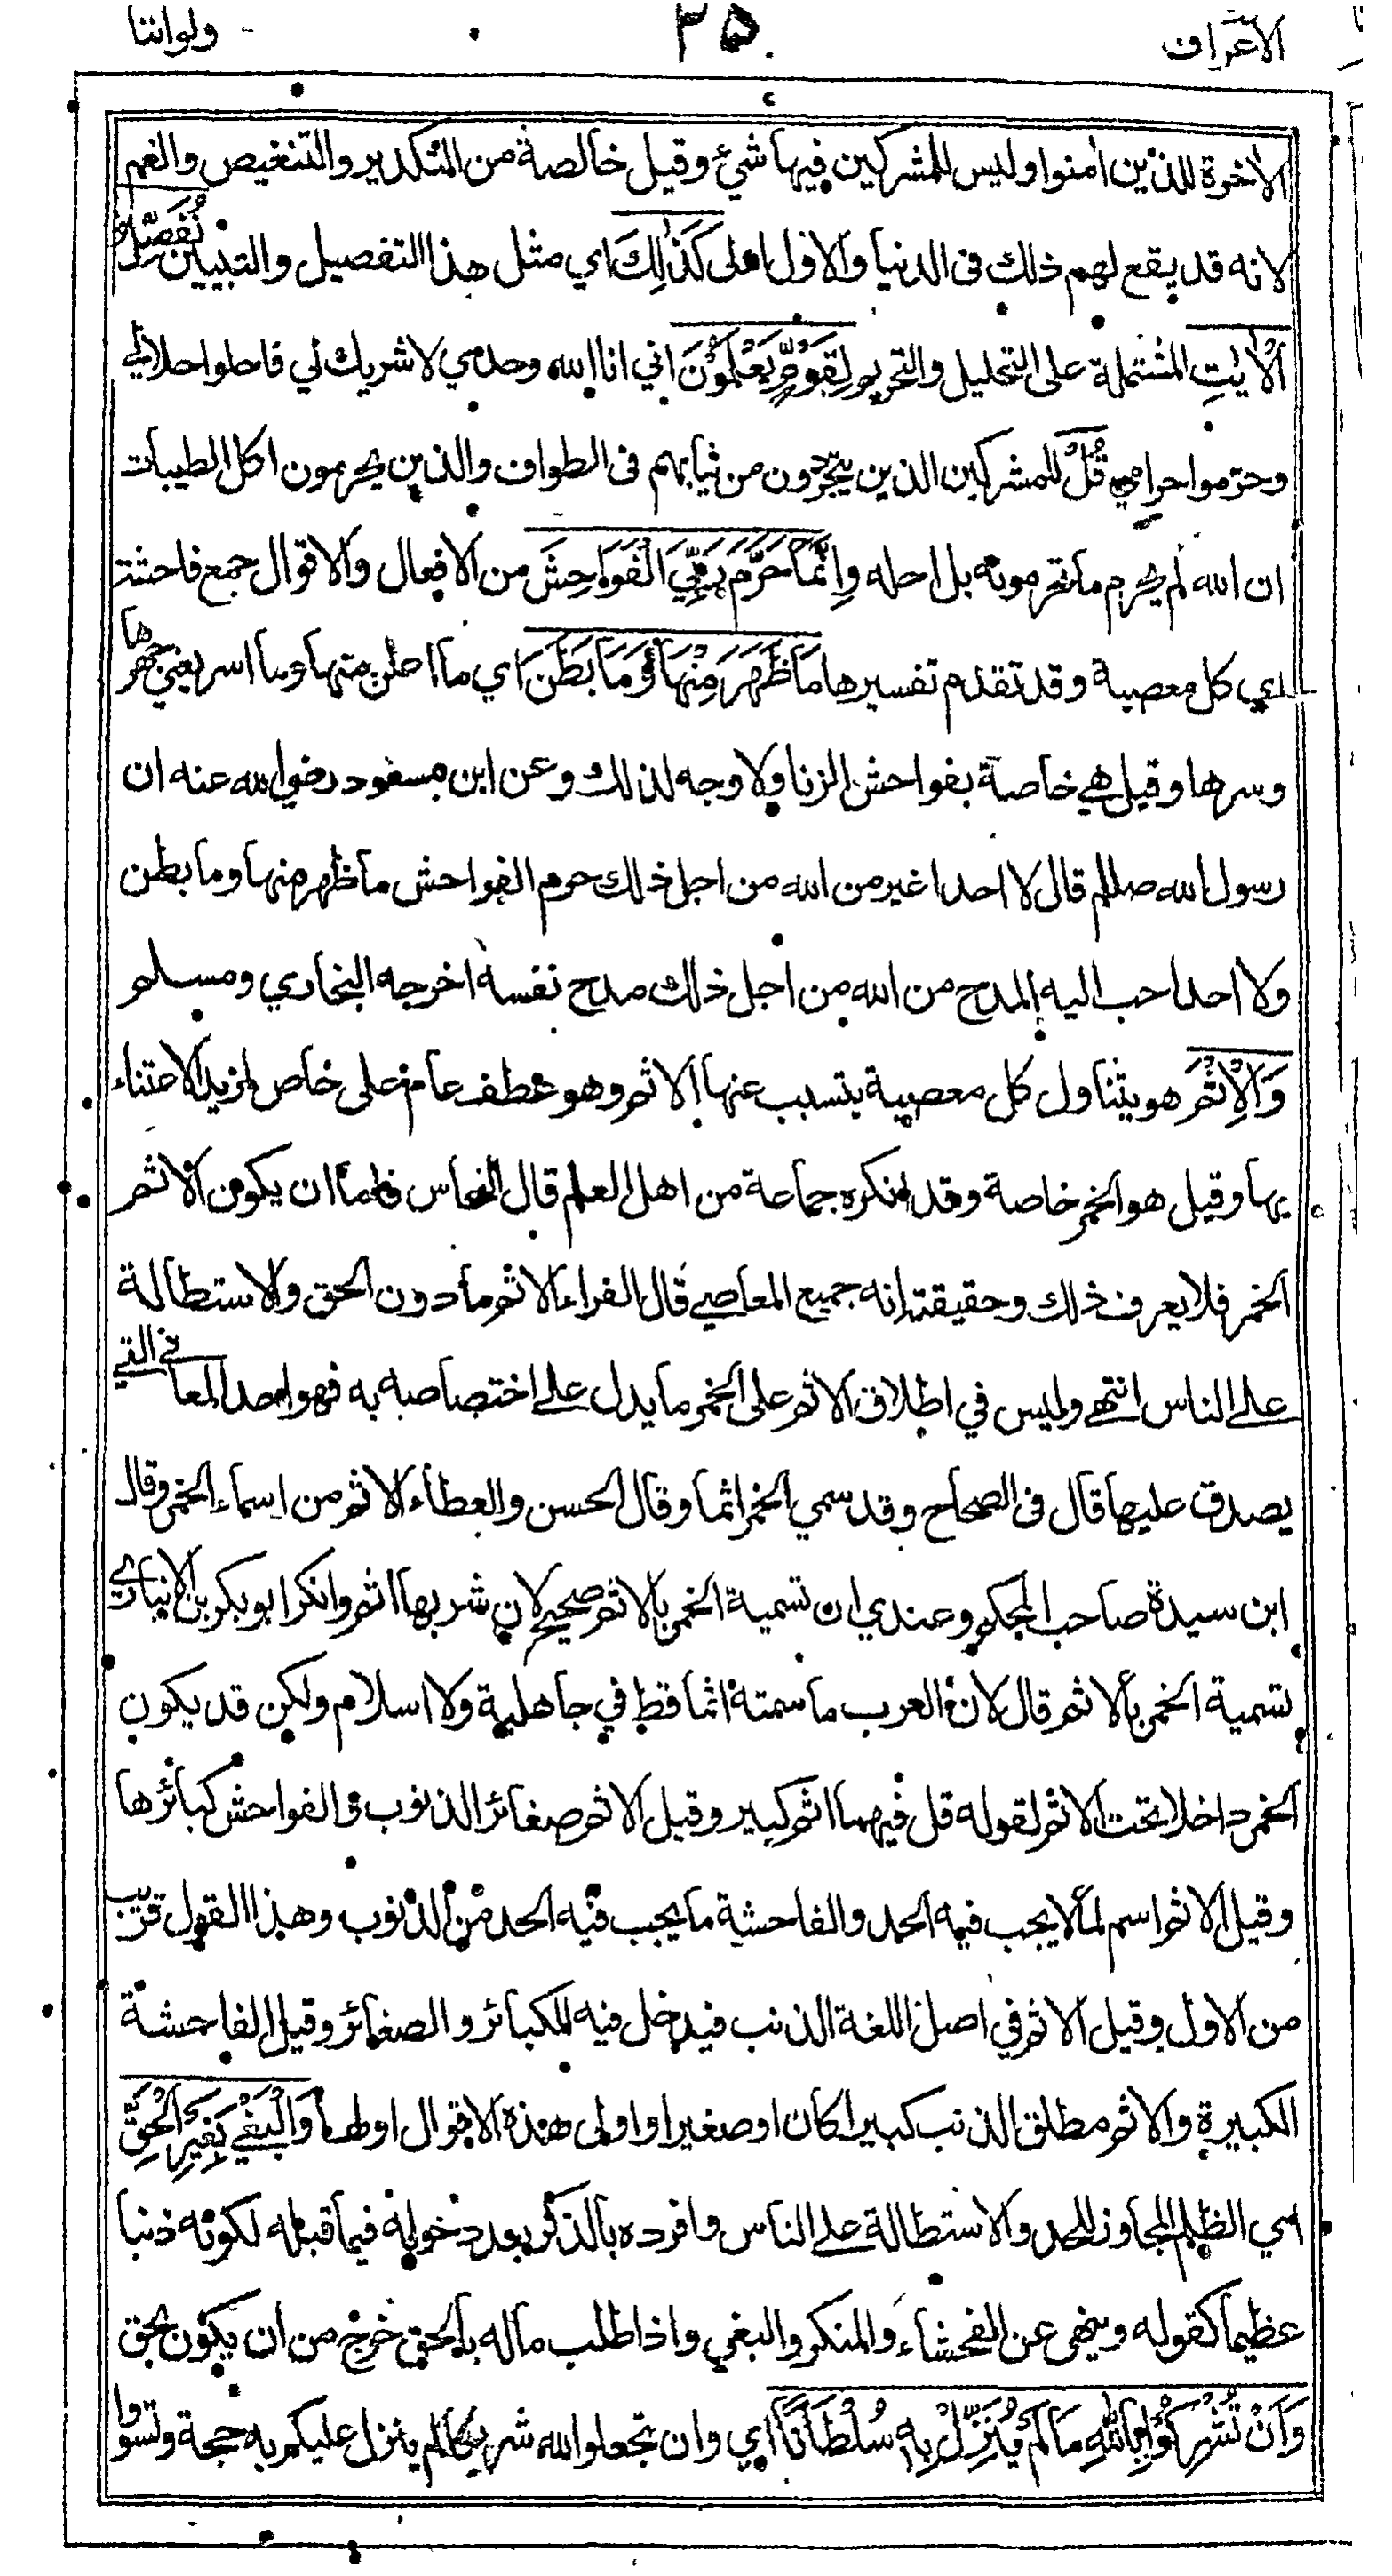 الاعراف ٣٥ ولواننا
الاخرة للذين امنوا وليس للمشركين فيها شيء وقيل خالصة من التكدير والتنغيص والغم
لانه قد يقع لهم ذلك فى الدنيا والاول اولى كَذٰلِكَ اي مثل هذا التفصيل والتبيين نُفَصِّلُ
الْاٰيٰتِ المشتملة على التحليل والتحريم لِقَوْمٍ يَّعْلَمُوْنَ اني انا الله وحدي لا شريك لي فاحلوا حلالي
وحرموا حرامي قُلْ للمشركين الذين يتجردون من ثيابهم فى الطواف والذين يحرمون اكل الطيبات
ان الله لم يحرم ما تحرمونه بل احله اِنَّمَا حَرَّمَ رَبِّيَ الْفَوَاحِشَ من الافعال والاقوال جمع فاحشة
اي كل معصية وقد تقدم تفسيرها مَا ظَهَرَ مِنْهَا وَمَا بَطَنَ اي ما اعلن منها وما اسر يعني جهرها
وسرها وقيل هي خاصة بفواحش الزنا ولا وجه لذلك وعن ابن مسعود رضي الله عنه ان
رسول الله صللم قال لا احد اغير من الله من اجل ذلك حرم الفواحش ما ظهر منها وما بطن
ولا احد احب اليه المدح من الله من اجل ذلك مدح نفسه اخرجه البخاري ومسلم
وَالْاِثْمَ هو يتناول كل معصية يتسبب عنها الاثم وهو عطف عام على خاص لمزيد الاعتناء
بها وقيل هو الخمر خاصة وقد انكره جماعة من اهل العلم قال النحاس فاما ان يكون الاثم
الخمر فلا يعرف ذلك وحقيقته انه جميع المعاصي قال الفراء الاثم ما دون الحق والاستطالة
على الناس انتهى وليس في اطلاق الاثم على الخمر ما يدل على اختصاصه به فهو احد المعاني التي
يصدق عليها قال فى الصحاح وقد سمي الخمر اثما وقال الحسن والعطاء الاثم من اسماء الخمر وقال
ابن سيدة صاحب المحكم وعندي ان تسمية الخمر بالاثم صحيح لان شربها اثم وانكر ابو بكر بن الانباري
تسمية الخمر بالاثم قال لان العرب ما سمته اثما قط في جاهلية ولا اسلام ولكن قد يكون
الخمر داخلا تحت الاثم لقوله قل فيهما اثم كبير وقيل الاثم صغائر الذنوب والفواحش كبائرها
وقيل الاثم اسم لما لا يجب فيه الحد والفاحشة ما يجب فيه الحد من الذنوب وهذا القول قريب
من الاول وقيل الاثم في اصل اللغة الذنب فيدخل فيه الكبائر والصغائر وقيل الفاحشة
الكبيرة والاثم مطلق الذنب كبيرا كان او صغيرا واولى هذه الاقوال اولها وَالْبَغْيَ بِغَيْرِ الْحَقِّ
اي الظلم المجاوز للحد والاستطالة على الناس وافرده بالذكر بعد دخوله فيما قبله لكونه ذنبا
عظيما كقوله وينهى عن الفحشاء والمنكر والبغي واذا طلب ماله بالحق خرج من ان يكون بحق
وَاَنْ تُشْرِكُوْا بِاللّٰهِ مَا لَمْ يُنَزِّلْ بِهٖ سُلْطَانًا اي وان تجعلوا لله شريكا لم ينزل عليكم به حجة وتسووا